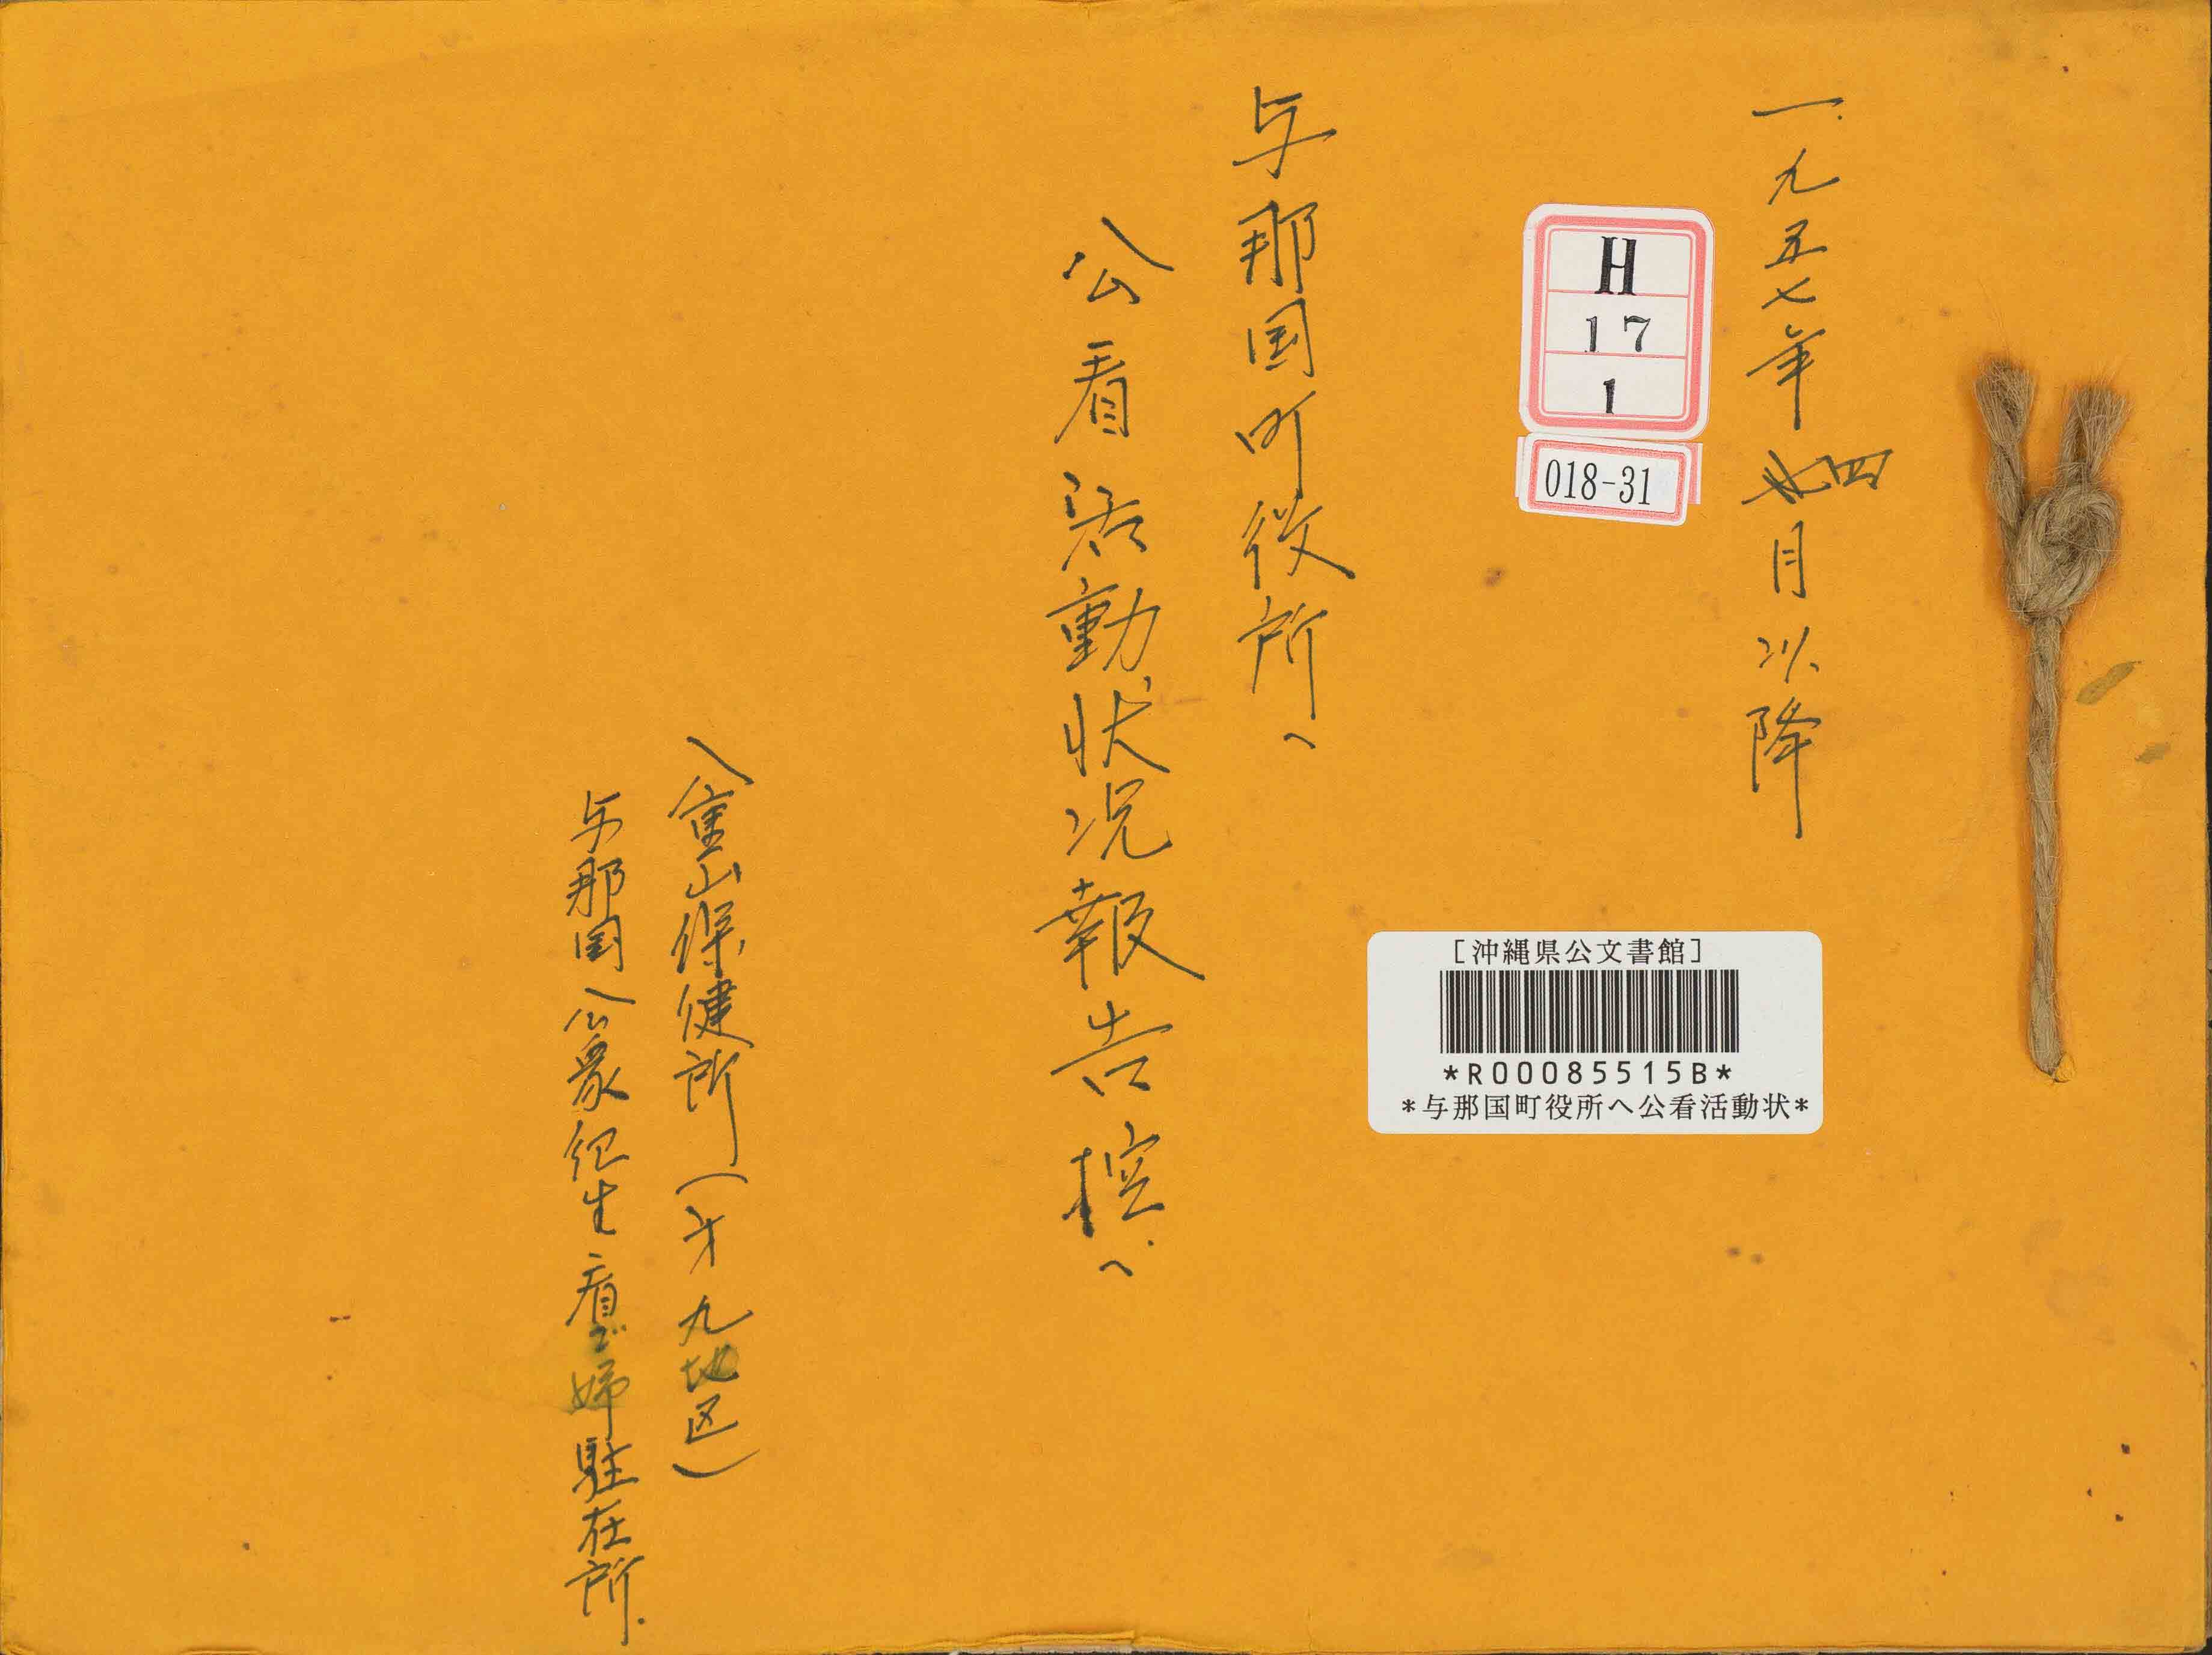 一九五七年四月以降
H
17
1
018-31
[沖縄県公文書館]
*R00085515B*
*与那国町役所へ公看活動状*
与那国町役所へ
公看活動状況報告控へ
八重山保健所(才九地区)
与那国公衆衛生看ゴ婦駐在所.